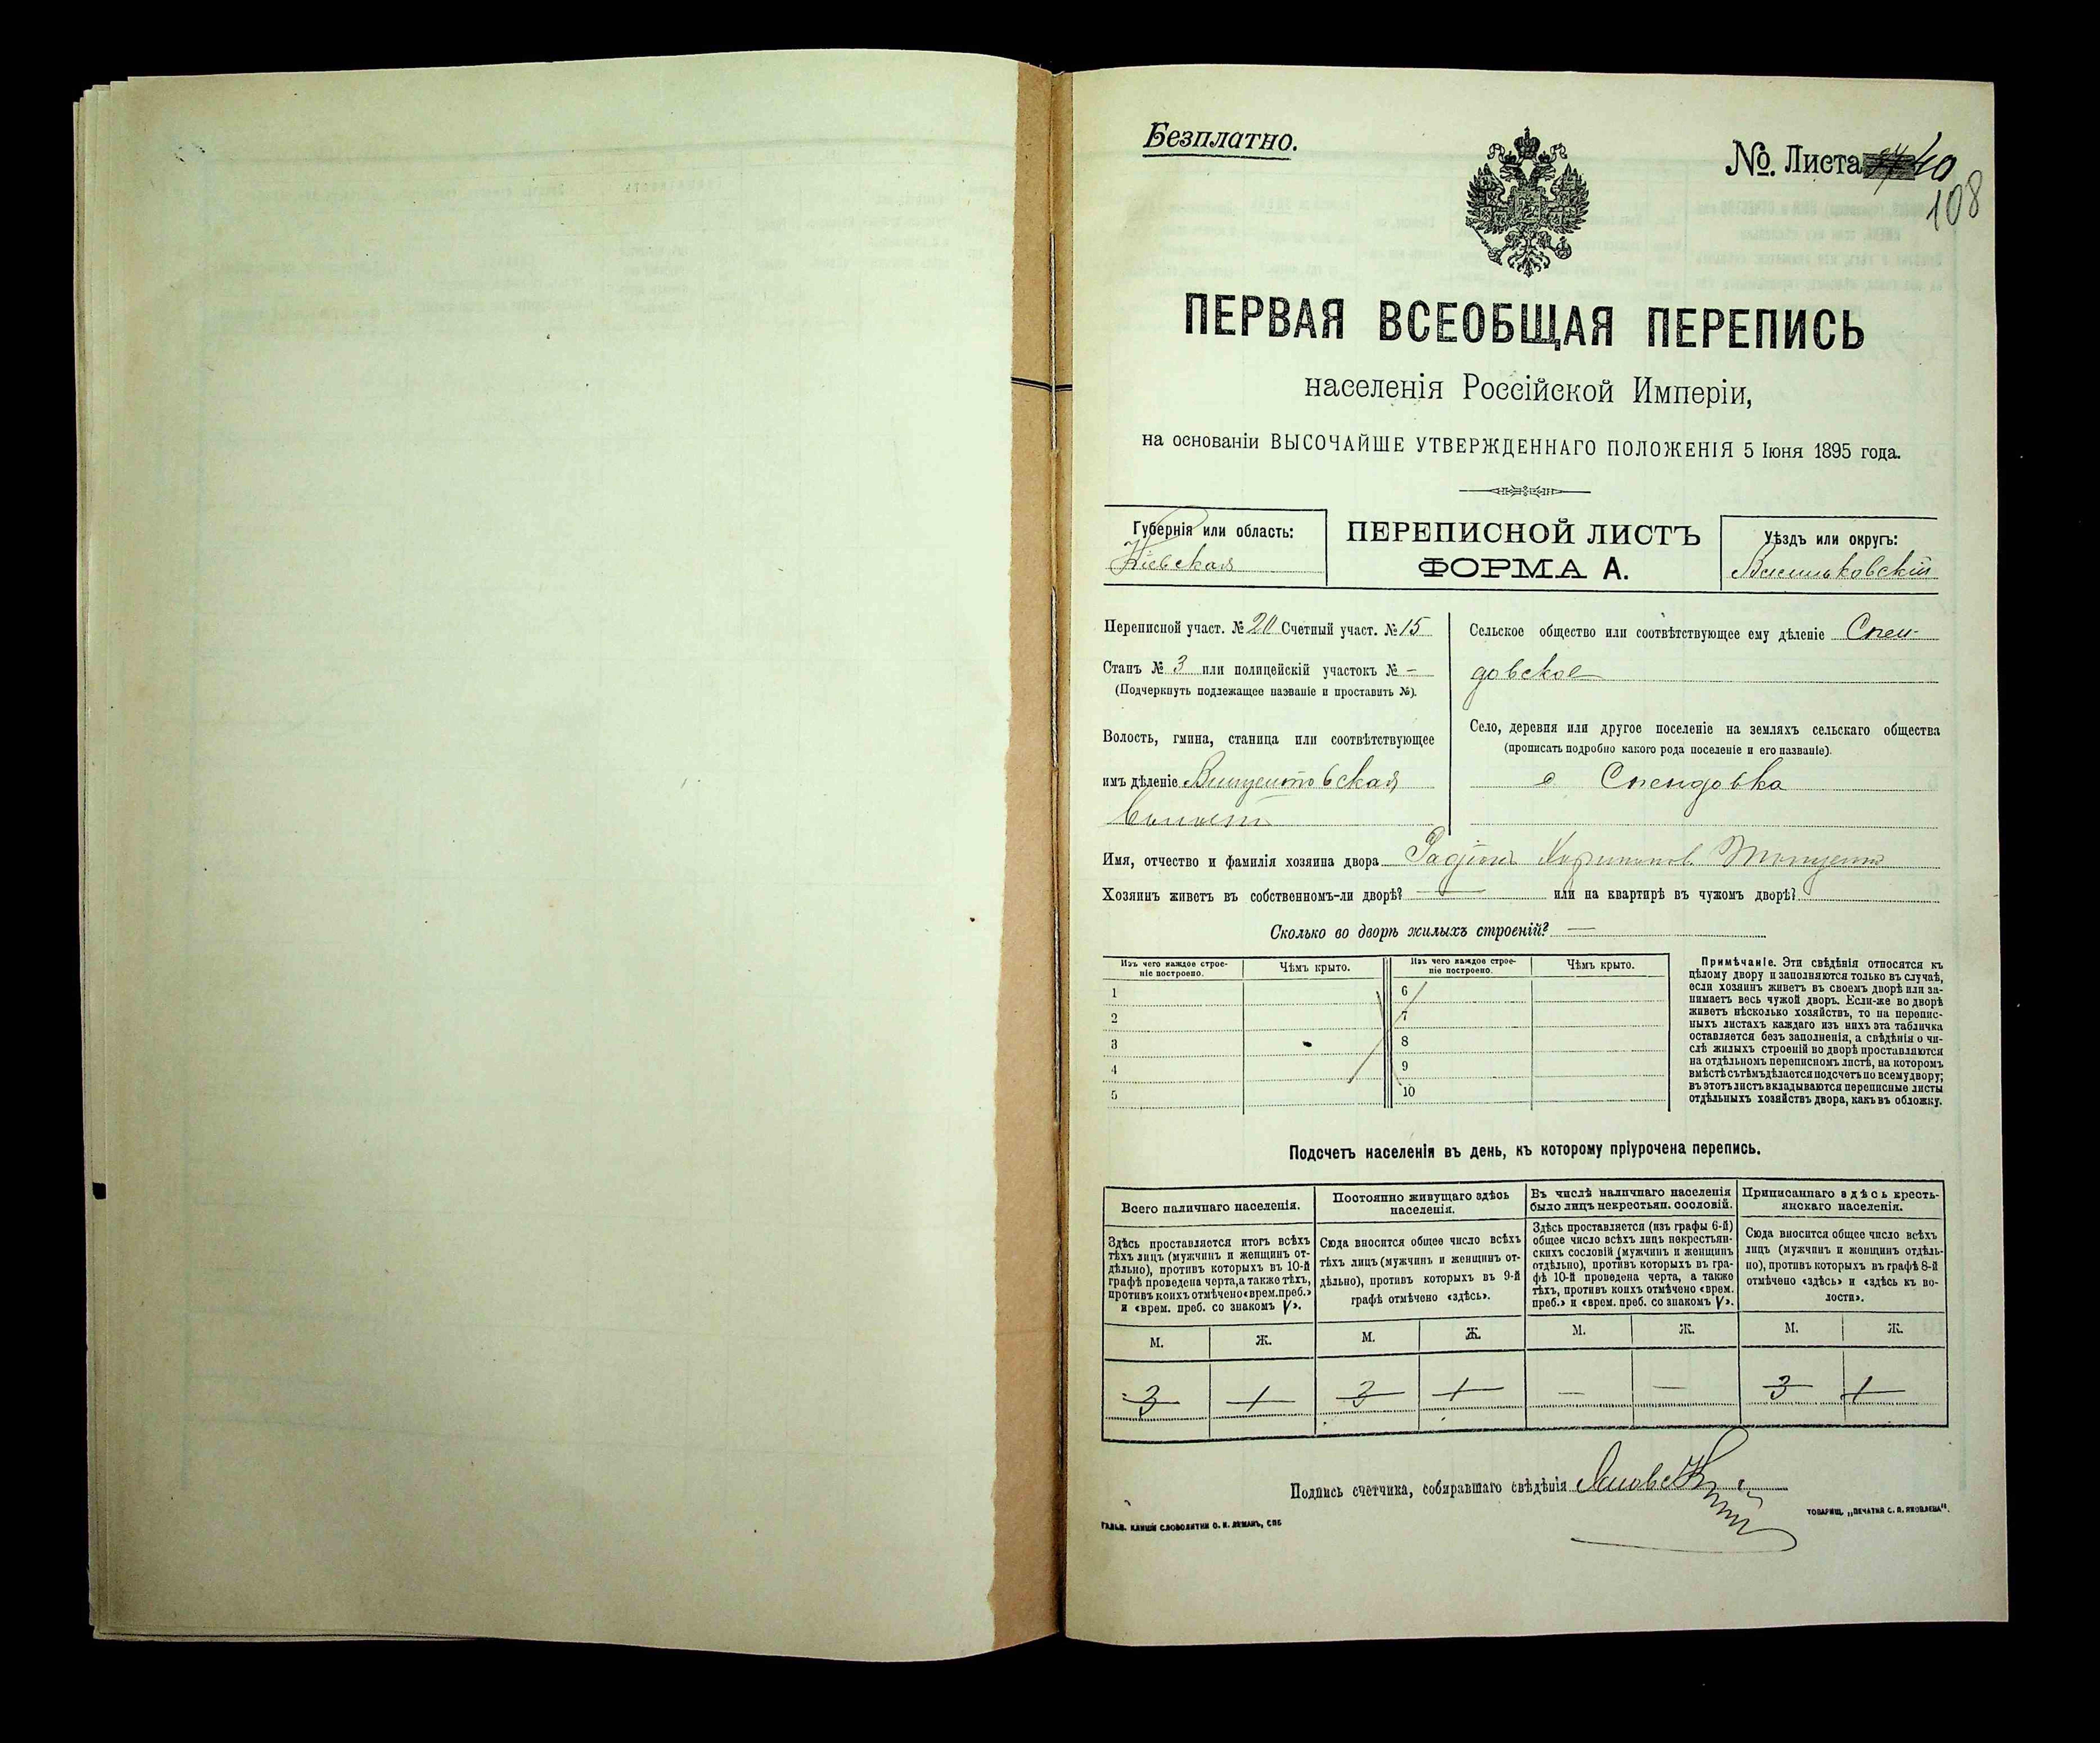 Безплатно.
№. Листа 40
108
ПЕРВАЯ ВСЕОБЩАЯ ПЕРЕПИСЬ
населенія Россійской Имперіи,
на основаніи ВЫСОЧАЙШЕ УТВЕРЖДЕННАГО ПОЛОЖЕНІЯ 5 Іюня 1895 года.
Губернія или область:
Кіевская
ПЕРЕПИСНОЙ ЛИСТЪ
ФОРМА А.
Уѣздъ или округъ:
Васильковскій
Переписной участ. № 20 Счетный участ. № 15
Станъ № 3 или полицейскій участокъ № —
(Подчеркнуть подлежащее названіе и проставить №).
Волость, гмина, станица или соотвѣтствующее
имъ дѣленіе Винцентовская
Сельское общество или соотвѣтствующее ему дѣленіе Спен-
довское
Село, деревня или другое поселеніе на земляхъ сельскаго общества
(прописать подробно какого рода поселеніе и его названіе).
с Спендовка
Имя, отчество и фамилія хозяина двора Радіонъ
Хозяинъ живетъ въ собственномъ-ли дворѣ? — или на квартирѣ въ чужомъ дворѣ?
Сколько во дворѣ жилыхъ строеній? —
Изъ чего каждое строе-
ніе построено.
Чѣмъ крыто.
Изъ чего каждое строе-
ніе построено.
Чѣмъ крыто.
1
2
3
4
5
6
7
8
9
10
Примѣчаніе. Эти свѣдѣнія относятся къ
цѣлому двору и заполняются только въ случаѣ,
если хозяинъ живетъ въ своемъ дворѣ или за-
нимаетъ весь чужой дворъ. Если-же во дворѣ
живетъ нѣсколько хозяйствъ, то на перепис-
ныхъ листахъ каждаго изъ нихъ эта табличка
оставляется безъ заполненія, а свѣдѣнія о чи-
слѣ жилыхъ строеній во дворѣ проставляются
на отдѣльномъ переписномъ листѣ, на которомъ
вмѣстѣ съ тѣмъ дѣлается подсчетъ по всему двору;
въ этотъ листъ вкладываются переписные листы
отдѣльныхъ хозяйствъ двора, какъ въ обложку.
Подсчетъ населенія въ день, къ которому пріурочена перепись.
Всего наличнаго населенія.
Здѣсь проставляется итогъ всѣхъ
тѣхъ лицъ (мужчинъ и женщинъ от-
дѣльно), противъ которыхъ въ 10-й
графѣ проведена черта, а также тѣхъ,
противъ коихъ отмѣчено «врем. преб.»
и «врем. преб. со знакомъ V».
Постоянно живущаго здѣсь
населенія.
Сюда вносится общее число всѣхъ
тѣхъ лицъ (мужчинъ и женщинъ от-
дѣльно), противъ которыхъ въ 9-й
графѣ отмѣчено «здѣсь».
Въ числѣ наличнаго населенія
было лицъ некрестьян. сословій.
Здѣсь проставляется (изъ графы 6-й)
общее число всѣхъ лицъ некрестьян-
скихъ сословій (мужчинъ и женщинъ
отдѣльно), противъ которыхъ въ гра-
фѣ 10-й проведена черта, а также
тѣхъ, противъ коихъ отмѣчено «врем.
преб.» и «врем. преб. со знакомъ V».
Приписаннаго здѣсь кресть-
янскаго населенія.
Сюда вносится общее число всѣхъ
лицъ (мужчинъ и женщинъ отдѣль-
но), противъ которыхъ въ графѣ 8-й
отмѣчено «здѣсь» и «здѣсь къ во-
лости».
М. Ж. М. Ж. М. Ж. М. Ж.
3 1 3 1 — — 3 1
Подпись счетчика, собиравшаго свѣдѣнія
ГАЛЬВ. КЛИШИ СЛОВОЛИТНИ О. И. ЛЕМАНЪ, СПБ
ТОВАРИЩ. „ПЕЧАТНЯ С. П. ЯКОВЛЕВА".